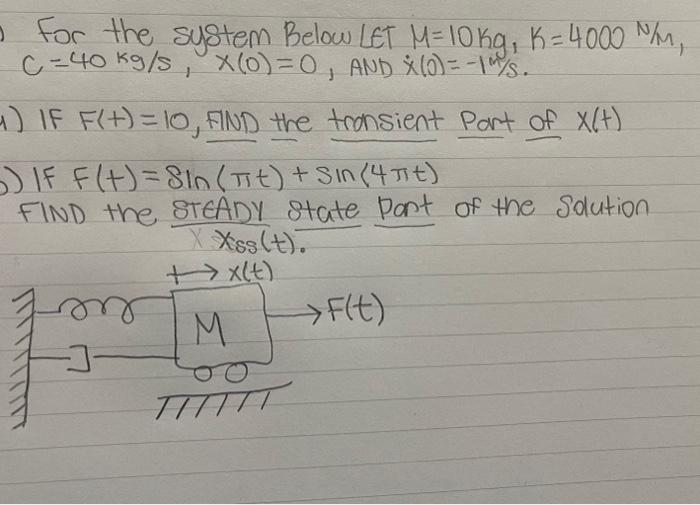 ) For the system Below LET M=10Kg, K=4000 N/m,
C=40 Kg/s, X(0)=0, AND Ẋ(0)=-1 M/s.
a) IF F(t)=10, FIND the transient Part of X(t)
b) IF F(t)=Sin(πt)+sin(4πt)
FIND the STEADY State Part of the Solution
Xss(t).
+→ x(t)
→F(t)
M